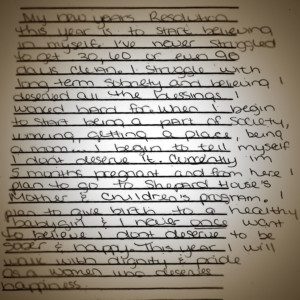 My new years Resolution
this year is to start believing
in myself. I've never struggled
to get 30, 60 or even 90
days clean. I struggle with
long term sobriety and believing I
deserved all the blessings I
worked hard for. When I begin
to start being a part of society,
working, getting a place, being
a mom. I begin to tell myself
I don't deserve it. Currently Im
5 months pregnant and from here I
plan to go to Shepard House's
Mother & Children's program. I
plan to give birth to a healthy
babygirl & I never once want
to believe I dont deserve to be
sober & happy. This year I will
walk with dignity & pride
as a women who deserves
happiness.